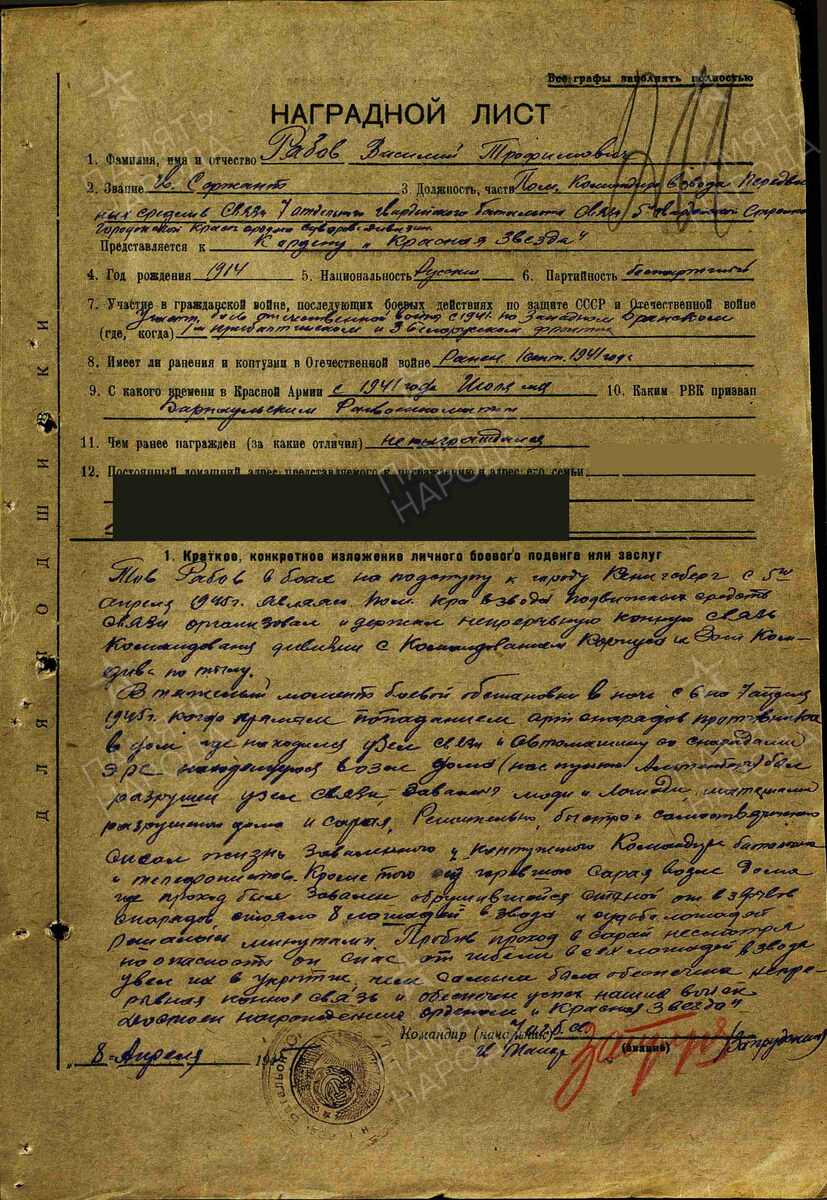 Все графы заполнять полностью
НАГРАДНОЙ ЛИСТ
1. Фамилия, имя и отчество Рабов Василий Трофимович
2. Звание Сержант 3 Должность, часть Пом. Командира взвода Передвиж
ных средств связи 7 отдельного гвардейского батальона связи 5 гвардейской Стрелко
Городокской Краснорд. ордена Суворова дивизии
Представляется к К ордену „Красная Звезда"
4. Год рождения 1914 5. Национальность Русский 6. Партийность беспартийный
7. Участие в гражданской войне, последующих боевых действиях по защите СССР и Отечественной войне
отечественной войне с 1941 на Западном Брянском
(где, когда) 1м прибалтийском и 3 Белорусском фронте
8. Имеет ли ранения и контузии в Отечественной войне Ранен 1941 года
9. С какого времени в Красной Армии с 1941 года Июля м-ца 10. Каким РВК призван
Барнаульским Райвоенкоматом
11. Чем ранее награжден (за какие отличия) не награждался
12. Постоянный домашний адрес представляемого к награждению и адрес его семьи
1. Краткое, конкретное изложение личного боевого подвига или заслуг
Тов Рабов в боях на подступу к городу Кенигсберг с 5го
апреля 1945г. являясь Пом. ком взвода подвижных средств
связи организовал и держал непрерывную конную связь
Командования дивизии с Командованием Корпуса и Зам Ком-
дива по тылу.
В тяжелый момент боевой обстановки в ночь с 6 на 7 апреля
1945г. когда прямым попаданием артснарядов противника
в дом где находился узел связи и автомашину со снарядами
ЭРС находящуюся возле дома (нас пункт) был
разрушен узел связи, завалены люди и лошади,
разрушен дома и сарая, Решительно, быстро и самоотверженно
спасал жизнь заваленного и контуженого Командира батальона
и телефонистов. Кроме того горевшего сарая возле дома
где проход был завален обрушившейся стеной от взрывов
снарядов стояло 8 лошадей взвода и судьба лошадей
решалась минутами. Пробив проход в сарай несмотря
на опасность он спас от гибели всех лошадей взвода
увел их в укрытие, чем самым была обеспечена непре-
рывная конная связь и обеспечен успех наших войск
достоин награждения орденом „Красная Звезда"
Командир (начальник)
Майор (звание)
„8 Апреля 194
ДЛЯ ПОДШИВКИ
ПАМЯТЬ НАРОДА